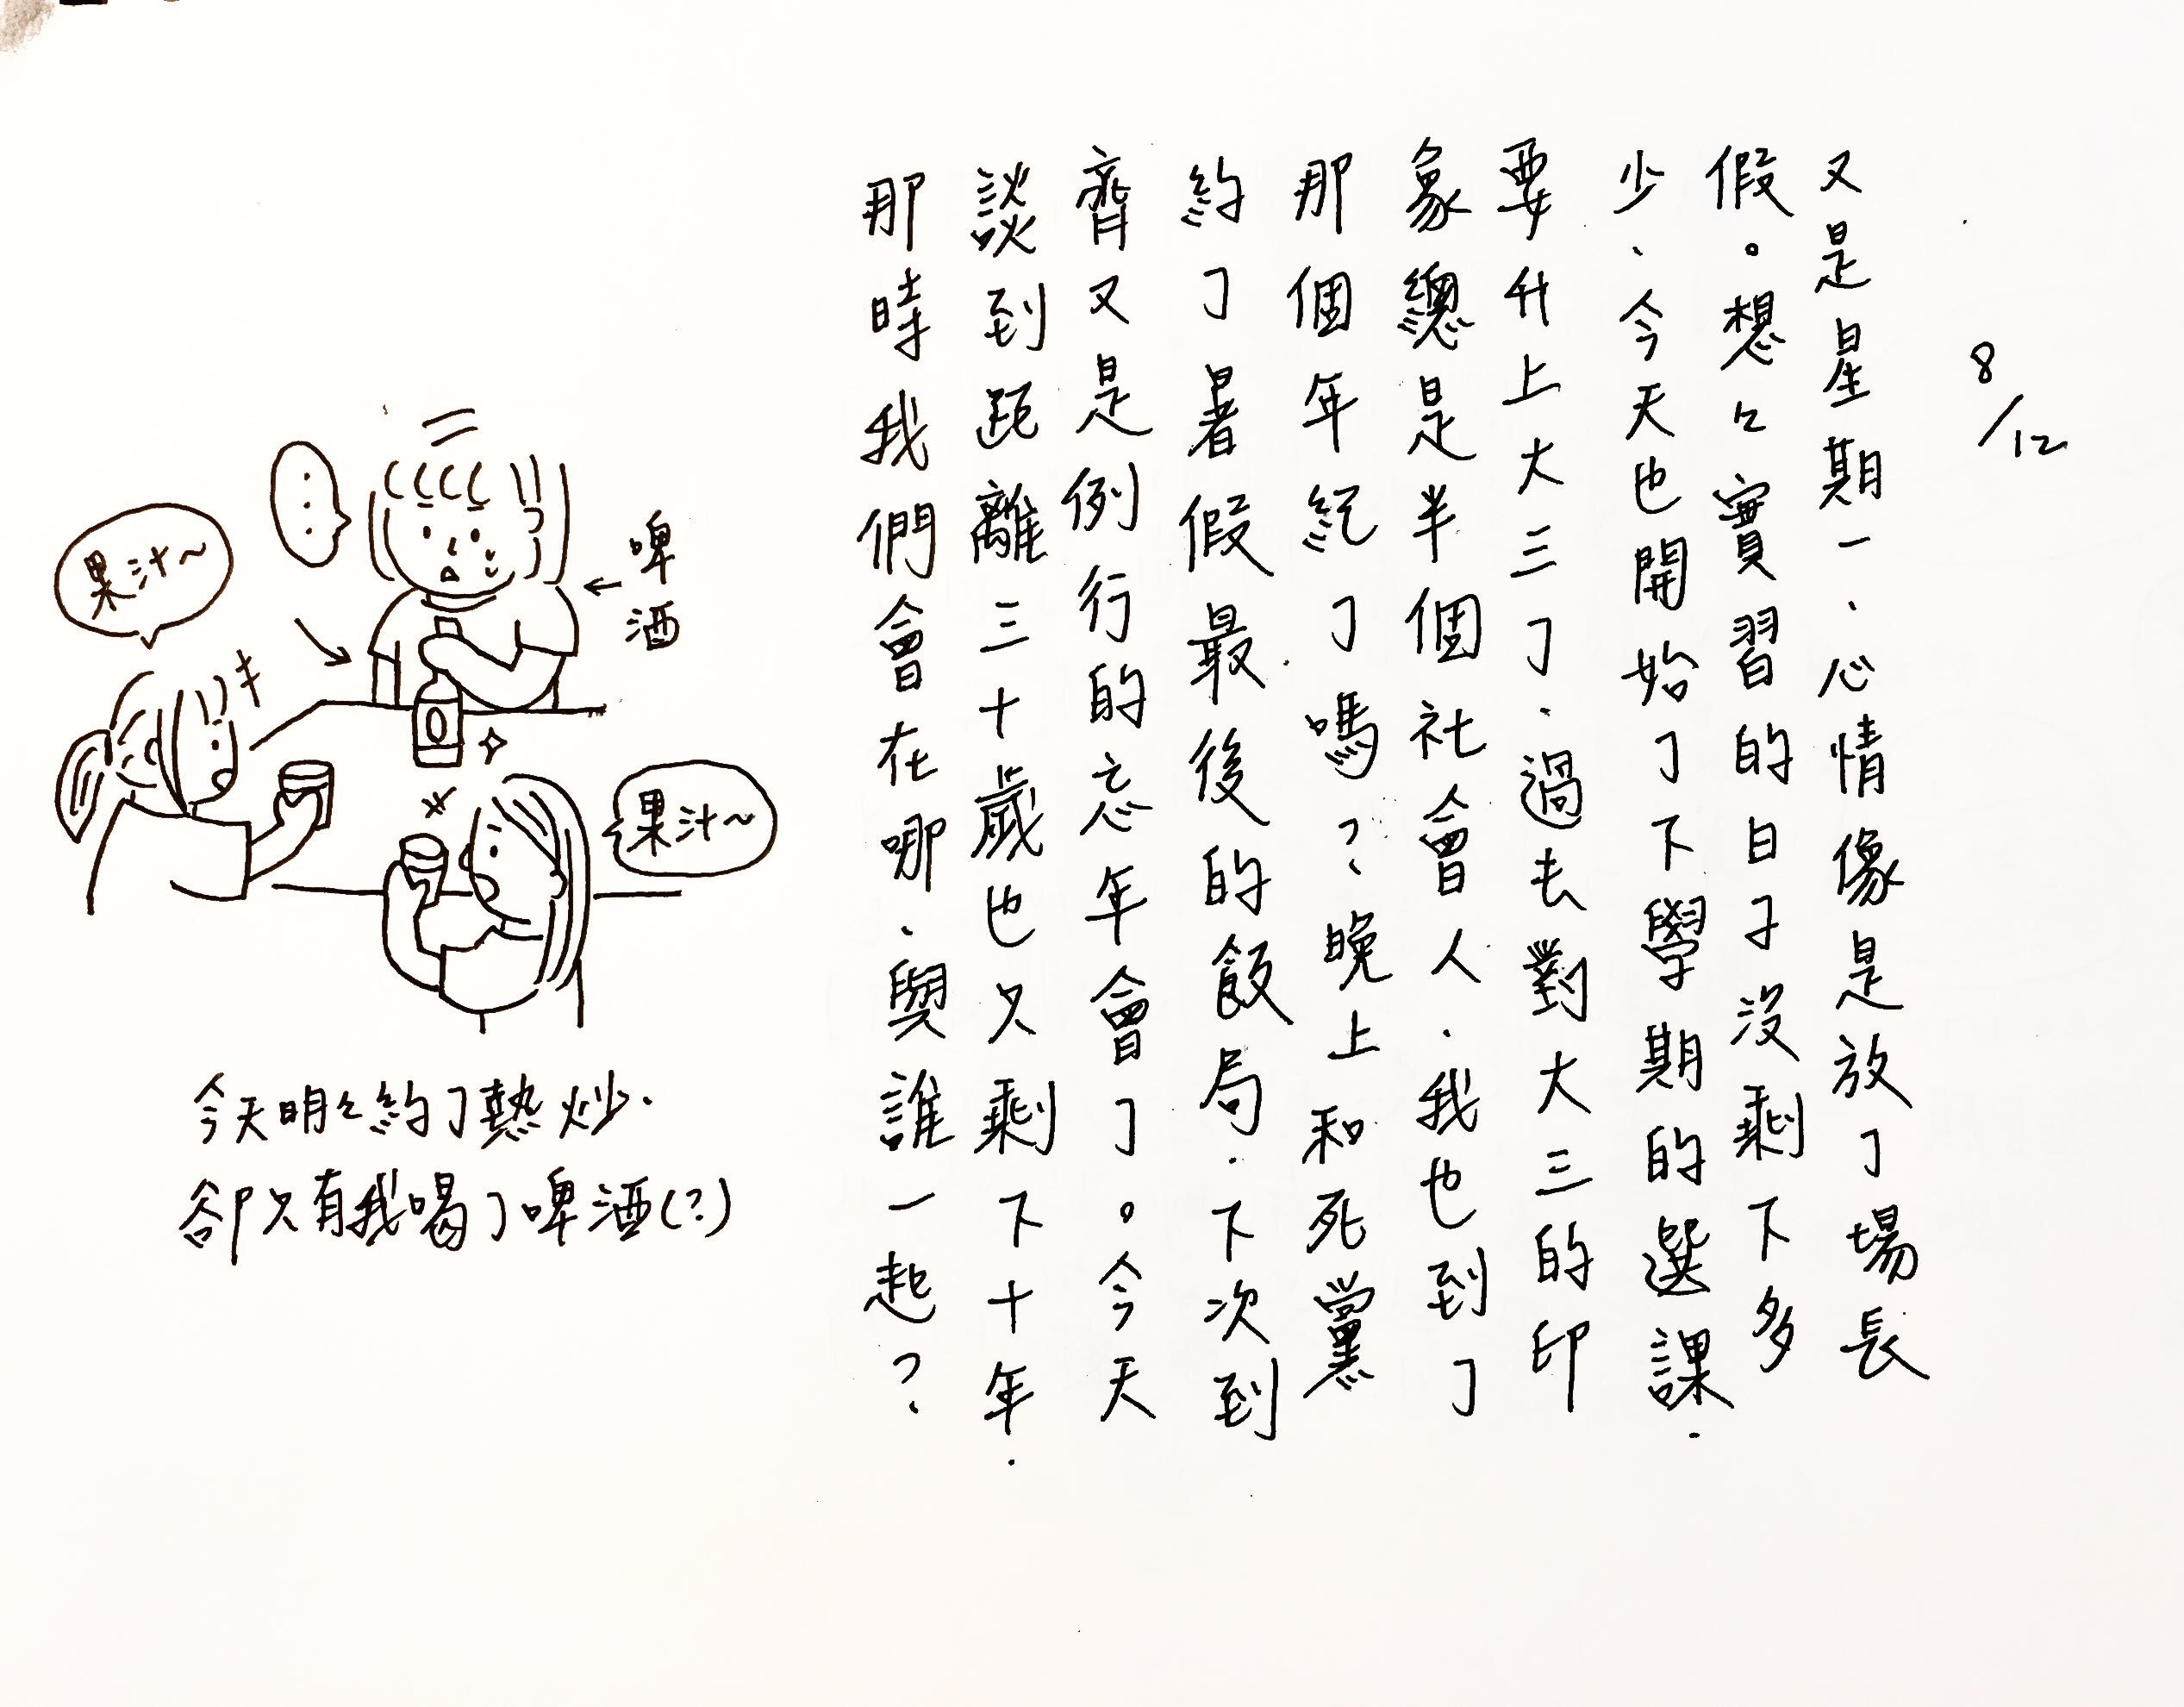 8/12
又是星期一、心情像是放了場長
假。想々實習的日子沒剩下多
少、今天也開始了下學期的選課、
要升上大三了、過去對大三的印
象總是半個社會人、我也到了
那個年紀了嗎？晚上和死黨
約了暑假最後的飯局、下次到
齊又是例行的忘年會了。今天
談到距離三十歲也只剩下十年、
那時我們會在哪、與誰一起？
啤酒
...
果汁～
果汁～
今天明々約了熱炒、
卻只有我喝了啤酒(?)